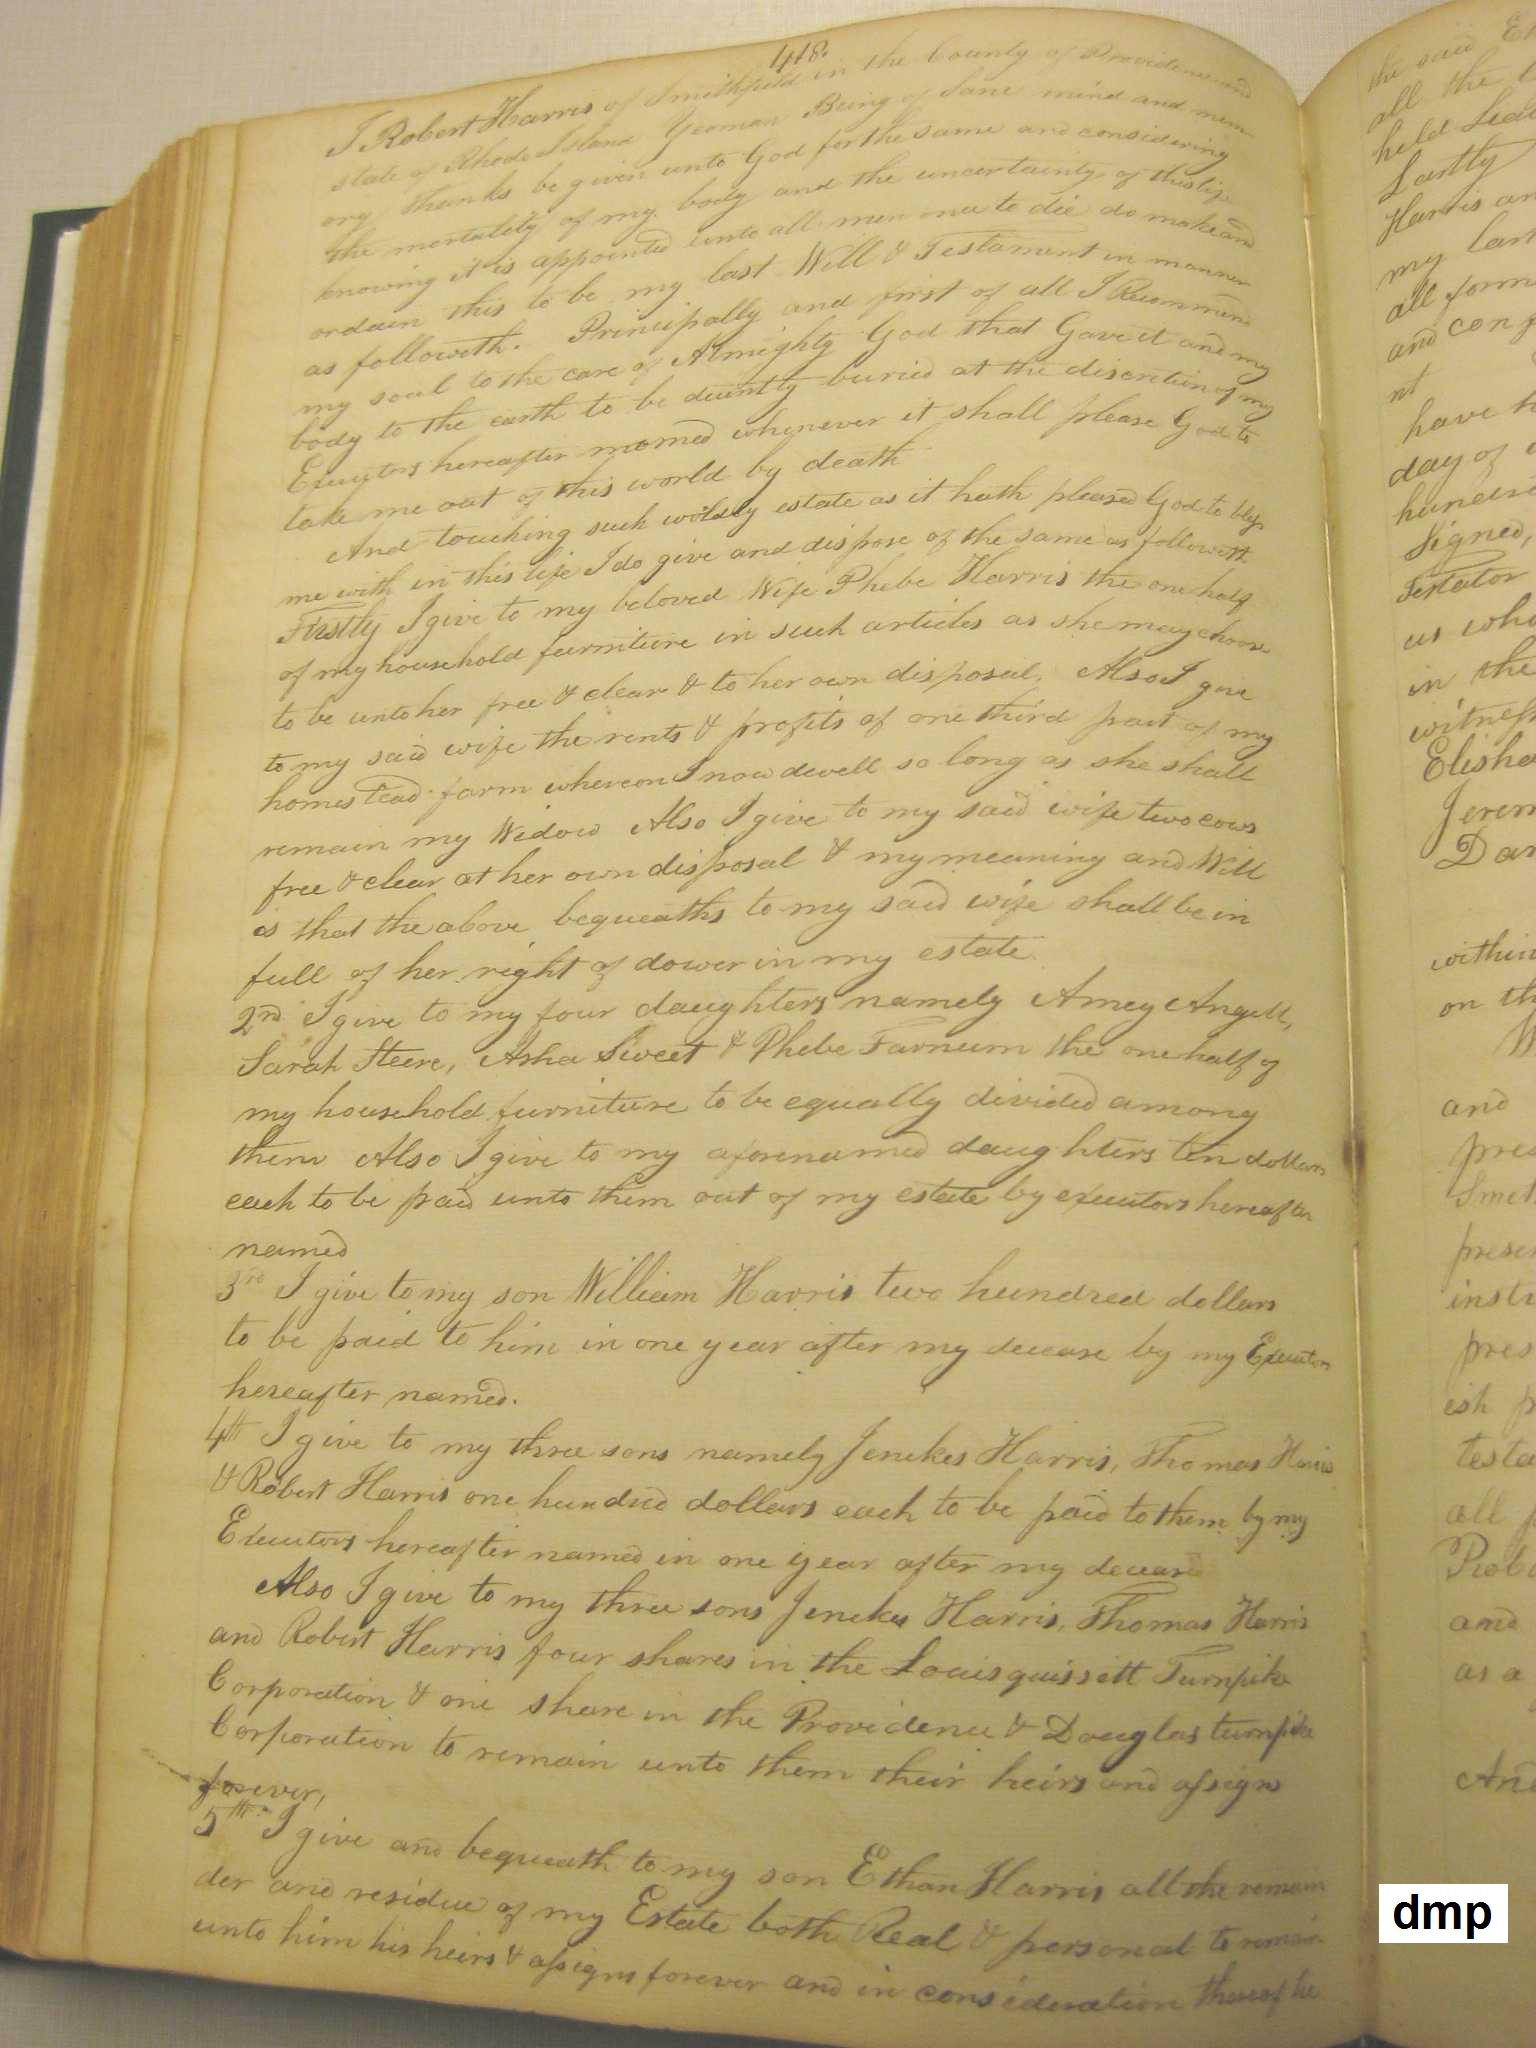 418.
I Robert Harris of Smithfield in the County of Providence and
state of Rhode Island Yeoman Being of Sane mind and mem
ory thanks be given unto God for the same and considering
the mortality of my body and the uncertainty of this life
knowing it is appointed unto all men once to die do make and
ordain this to be my last Will & Testament in manner
as followeth. Principally and first of all I Recommend
my soul to the care of Almighty God that Gave it and my
body to the earth to be decently buried at the discretion of my
Executors hereafter named whenever it shall please God to
take me out of this world by death
And touching such worldly estate as it hath pleased God to bless
me with in this life I do give and dispose of the same as followeth
Firstly I give to my beloved Wife Phebe Harris the one half
of my household furniture in such articles as she may choose
to be unto her free & clear & to her own disposal. Also I give
to my said wife the rents & profits of one third part of my
homestead farm whereon I now dwell so long as she shall
remain my Widow Also I give to my said wife two cows
free & clear at her own disposal & my meaning and Will
is that the above bequeaths to my said wife shall be in
full of her right of dower in my estate
2nd I give to my four daughters namely Amey Angell,
Sarah Steere, Asha Sweet & Phebe Farnum the one half of
my household furniture to be equally divided among
them Also I give to my aforenamed daughters ten dollars
each to be paid unto them out of my estate by executors hereafter
named
3rd I give to my son William Harris two hundred dollars
to be paid to him in one year after my decease by my Executors
hereafter named.
4th I give to my three sons namely Jenckes Harris, Thomas Harris
& Robert Harris one hundred dollars each to be paid to them by my
Executors hereafter named in one year after my decease
Also I give to my three sons Jenckes Harris, Thomas Harris
and Robert Harris four shares in the Louisquissett Turnpike
Corporation & one share in the Providence & Douglas turnpike
Corporation to remain unto them their heirs and assigns
forever,
5th I give and bequeath to my son Ethan Harris all the remain
der and residue of my Estate both Real & personal to remain
unto him his heirs & assigns forever and in consideration thereof he
the said
all the
held
Lastly
Harris an
my last
all form
and conf
nt
have h
day of
hundre
Signed,
Testator
us who
in the
witness
Elisha
Jerem
Dan
within
on th
W
and
pres
Smit
presen
instr
pres
ish p
testa
all p
Prob
and
as a
And
dmp